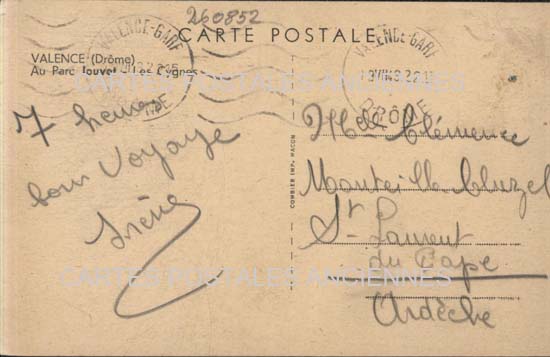 260852
CARTE POSTALE
VALENCE (Drôme)
Au Parc Jouvet - Les Cygnes
VALENCE-GARE
DRÔME
VALENCE-GARE
DRÔME
7 heures
bon Voyage
Irène
COMBIER IMP. MACON
Melle Clémence
Monteil
St Laurent
du Pape
Ardèche
CARTES POSTALES ANCIENNES
CARTES POSTALES ANCIENNES